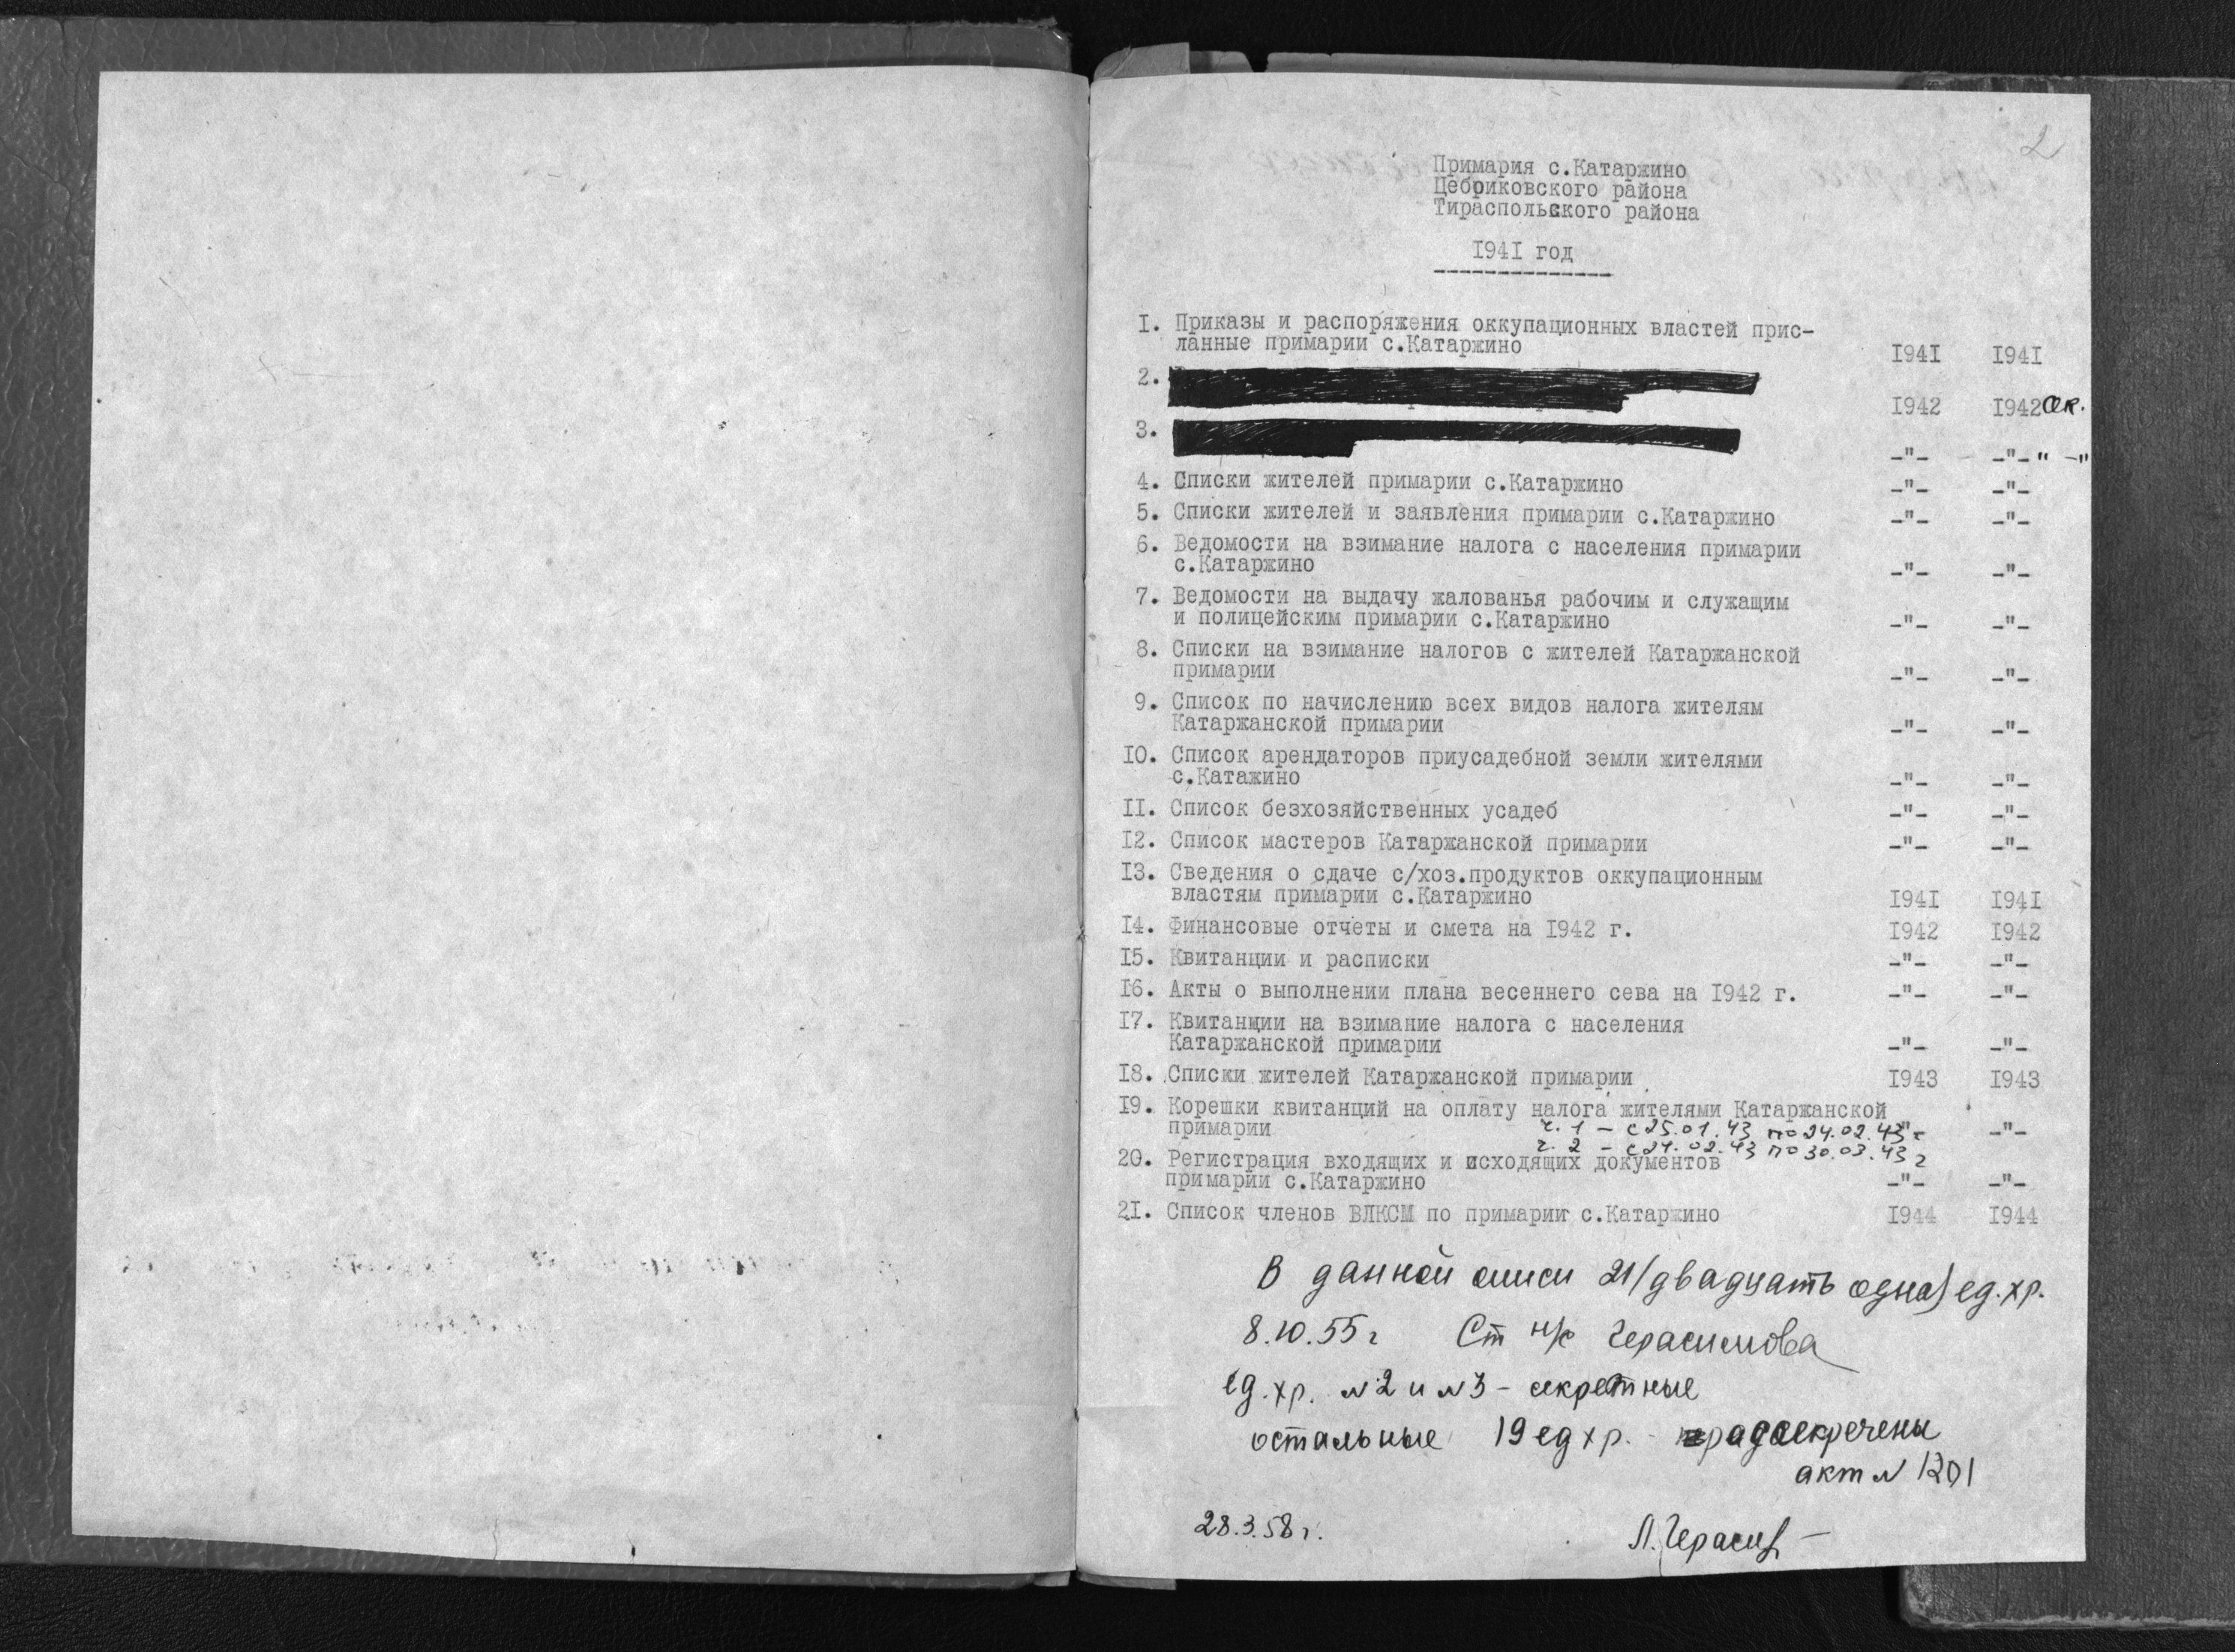 2
Примария с.Катаржино
Цебриковского района
Тираспольского района
I94I год
I. Приказы и распоряжения оккупационных властей прис-
ланные примарии с.Катаржино I94I I94I
2. I942 I942
3. -"- -"- " -"
4. Списки жителей примарии с.Катаржино -"- -"-
5. Списки жителей и заявления примарии с.Катаржино -"- -"-
6. Ведомости на взимание налога с населения примарии
с.Катаржино -"- -"-
7. Ведомости на выдачу жалованья рабочим и служащим
и полицейским примарии с.Катаржино -"- -"-
8. Списки на взимание налогов с жителей Катаржанской
примарии -"- -"-
9. Список по начислению всех видов налога жителям
Катаржанской примарии -"- -"-
IO. Список арендаторов приусадебной земли жителями
с.Катажино -"- -"-
II. Список безхозяйственных усадеб -"- -"-
I2. Список мастеров Катаржанской примарии -"- -"-
I3. Сведения о сдаче с/хоз.продуктов оккупационным
властям примарии с.Катаржино I94I I94I
I4. Финансовые отчеты и смета на I942 г. I942 I942
I5. Квитанции и расписки -"- -"-
I6. Акты о выполнении плана весеннего сева на I942 г. -"- -"-
I7. Квитанции на взимание налога с населения
Катаржанской примарии -"- -"-
I8. Списки жителей Катаржанской примарии I943 I943
I9. Корешки квитанций на оплату налога жителями Катаржанской
примарии ч. 1 – с 25.01.43 по 24.02.43 г -"- -"-
ч. 2 – с 24.02.43 по 30.03.43 г
20. Регистрация входящих и исходящих документов
примарии с.Катаржино -"- -"-
2I. Список членов ВЛКСМ по примарии с.Катаржино I944 I944
В данной описи 21/двадцать одна) ед.хр.
8.10.55 г Ст н/с Герасимова
ед.хр. №2 и №3 – секретные
остальные 19 ед хр. - рассекречены
акт № 1201
28.3.58 г. Л. Герасим